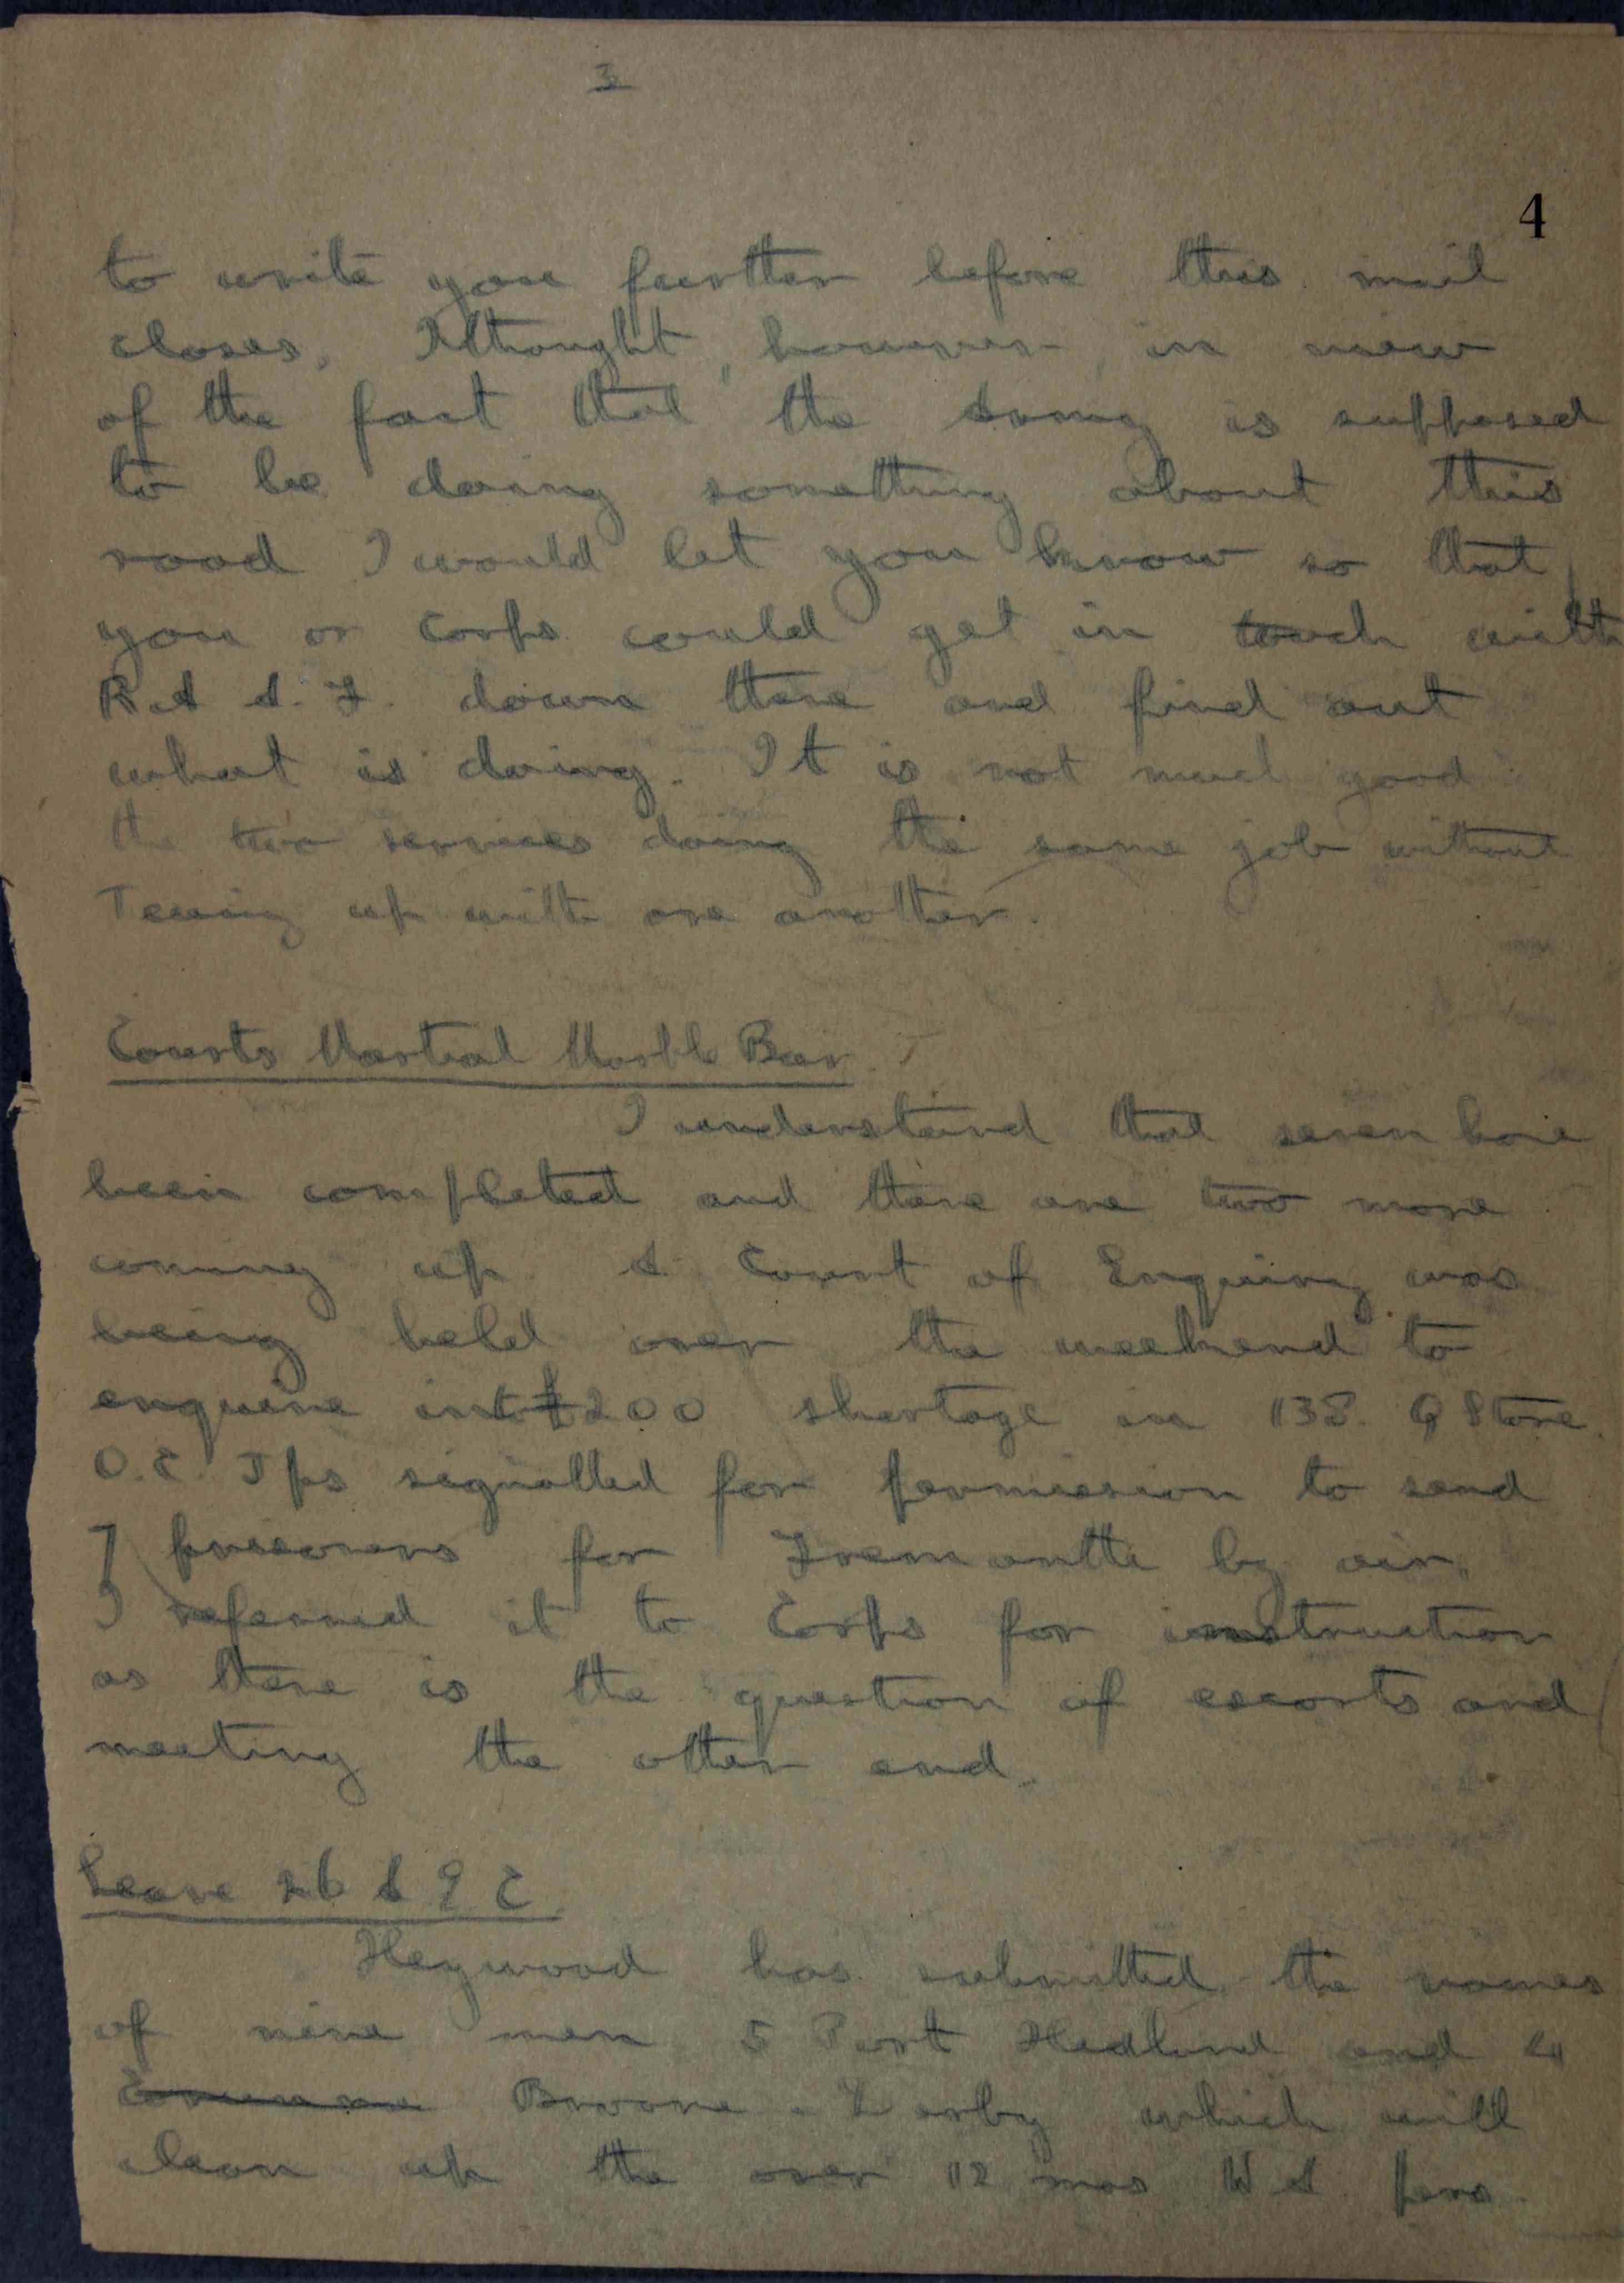 3
4
to write you further before this mail
closes, I thought, however, in view
of the fact that the Army is supposed
to be doing something about this
road I would let you know so that
you or Corps could get in touch with
R A A. F. down there and find out
what is doing. It is not much good
the two services doing the same job without
Teeing up with one another.
Courts Martial Marble Bar
I understand that seven have
been completed and there are two more
coming up. A Court of Enquiry was
being held over the weekend to
enquire into £200 shortage in 138 Q Store.
O.C. Tps signalled for permission to send
7 prisoners for Fremantle by air,
I referred it to Corps for instruction
as there is the question of escorts and
meeting the other end.
Leave 26 A G C
Heywood has submitted the names
of nine men 5 Port Hedland and 4
Broome - Derby which will
clean up the over 12 mos W A pers.